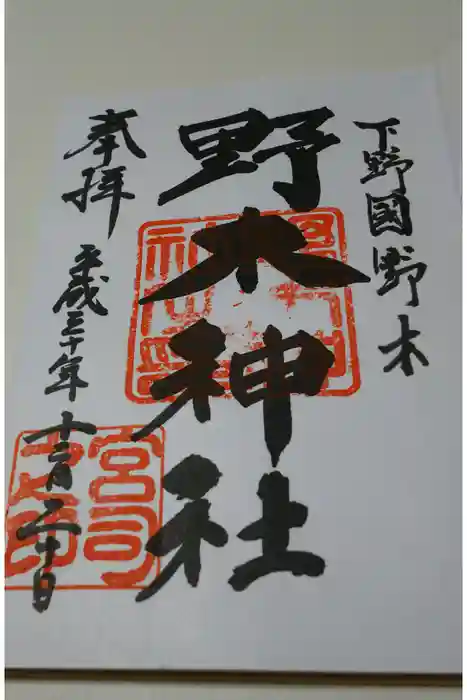 下野國野木
野木神社
奉拝
平成三十年十二月二十日
宮司之印